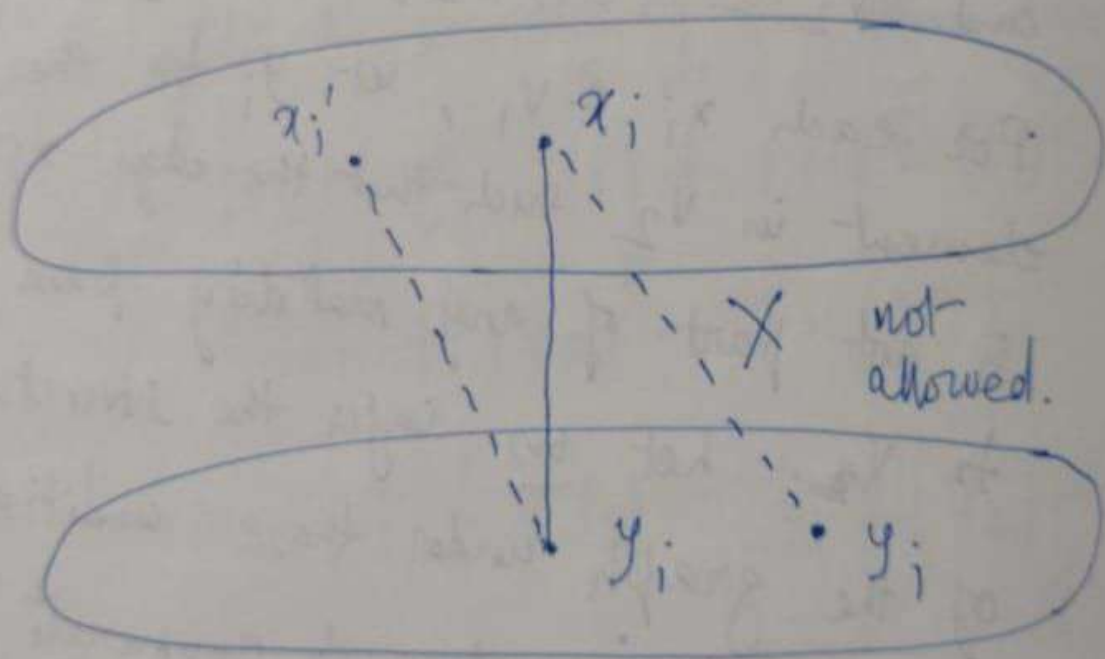 xᵢ' xᵢ
X not
allowed.
yᵢ yⱼ